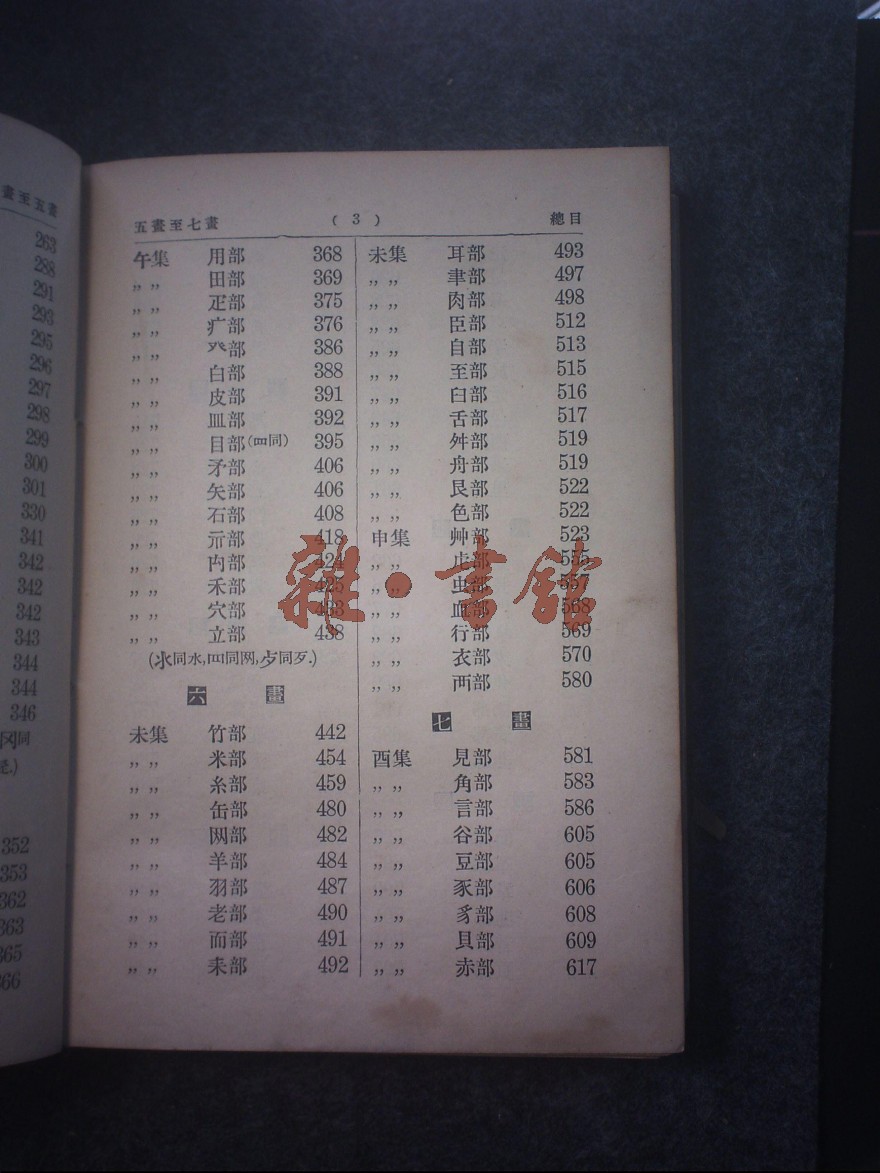 畫至五畫
263
288
291
293
295
296
297
298
299
300
301
330
341
342
342
342
343
344
344
346
同
352
353
362
363
365
366
五畫至七畫 ( 3 ) 總目
午集 用部 368
〃〃 田部 369
〃〃 疋部 375
〃〃 疒部 376
〃〃 癶部 386
〃〃 白部 388
〃〃 皮部 391
〃〃 皿部 392
〃〃 目部(罒同) 395
〃〃 矛部 406
〃〃 矢部 406
〃〃 石部 408
〃〃 示部 418
〃〃 禸部 424
〃〃 禾部 425
〃〃 穴部 433
〃〃 立部 438
(氺同水,罒同网,歺同歹.)
六 畫
未集 竹部 442
〃〃 米部 454
〃〃 糸部 459
〃〃 缶部 480
〃〃 网部 482
〃〃 羊部 484
〃〃 羽部 487
〃〃 老部 490
〃〃 而部 491
〃〃 耒部 492
未集 耳部 493
〃〃 聿部 497
〃〃 肉部 498
〃〃 臣部 512
〃〃 自部 513
〃〃 至部 515
〃〃 臼部 516
〃〃 舌部 517
〃〃 舛部 519
〃〃 舟部 519
〃〃 艮部 522
〃〃 色部 522
申集 艸部 523
〃〃 虍部 555
〃〃 虫部 557
〃〃 血部 568
〃〃 行部 569
〃〃 衣部 570
〃〃 襾部 580
七 畫
酉集 見部 581
〃〃 角部 583
〃〃 言部 586
〃〃 谷部 605
〃〃 豆部 605
〃〃 豕部 606
〃〃 豸部 608
〃〃 貝部 609
〃〃 赤部 617
雜·書館